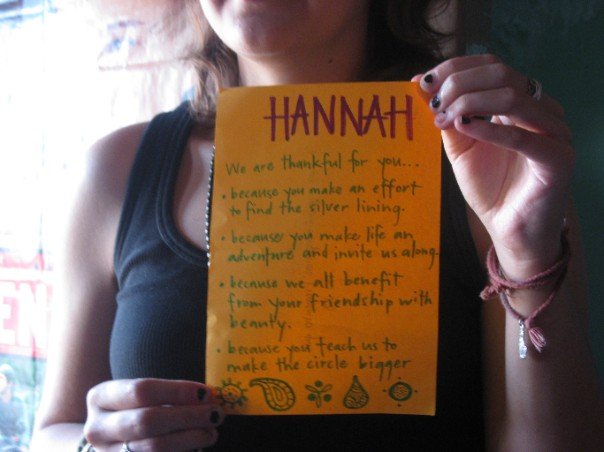 HANNAH
We are thankful for you...
• because you make an effort
to find the silver lining.
• because you make life an
adventure and invite us along.
• because we all benefit
from your friendship with
beauty.
• because you teach us to
make the circle bigger
EN